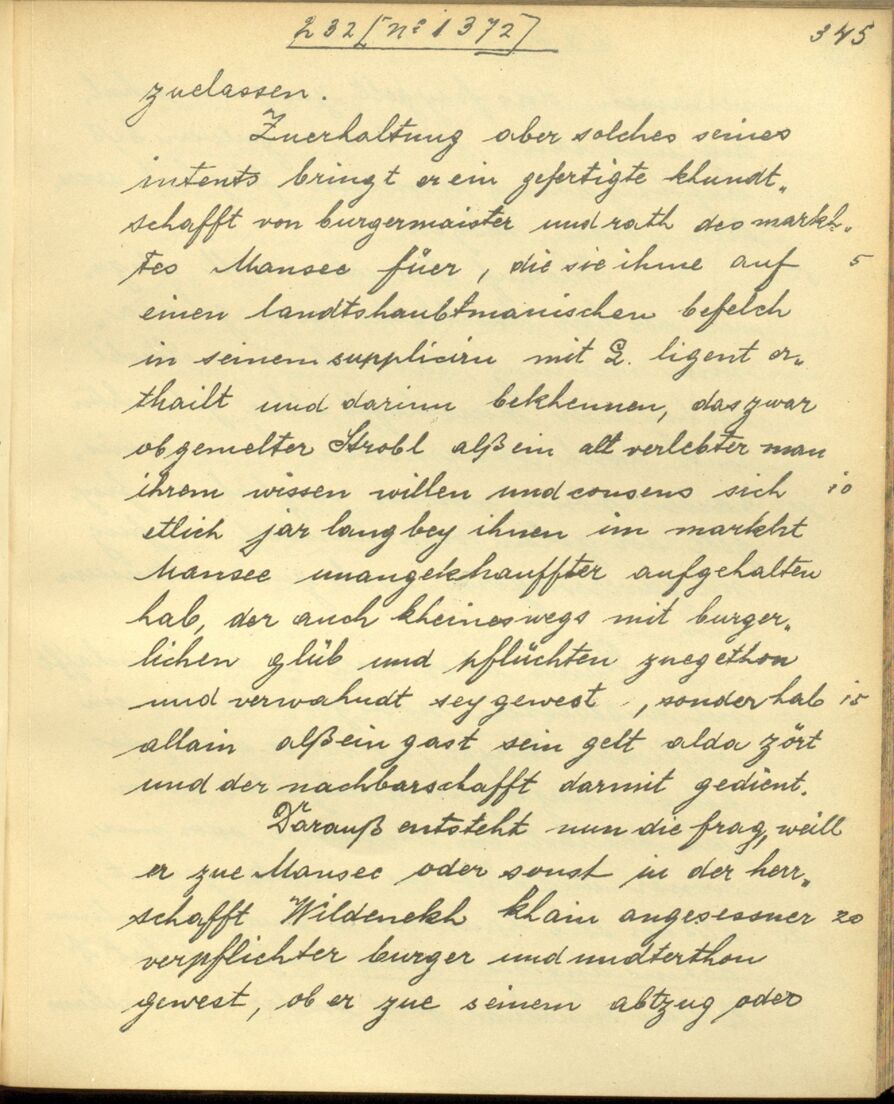 h 32 [nº 1372] 345
zuelassen.
Zuerhaltung aber solches seines
intents bringt er ein gefertigte khundt„
schafft von burgermaister und rath des markh„
tes Mansee füer, die sie ihme auf 5
einen landtshaubtmanischen befelch
in seinem suppliciru mit L. ligent er„
thailt und darinn bekhennen, das zwar
obgemelter Strobl alß ein alt verlebter man
ihrem wissen willen und consens sich 10
etlich jar lang bey ihnen im markht
Mansee unangekhauffter aufgehalten
hab, der auch kheineswegs mit burger„
lichen glüb und pflüchten zuegethon
und verwahndt sey gewest, sonder hab 15
allain alß ein gast sein gelt alda zört
und der nachbarschafft darmit gedient.
Darauß entsteht nun die frag, weill
er zue Mansee oder sonst in der herr„
schafft Wildenekh khain angesessner 20
verpflichter burger und undterthon
gewest, ob er zue seinem abtzug oder